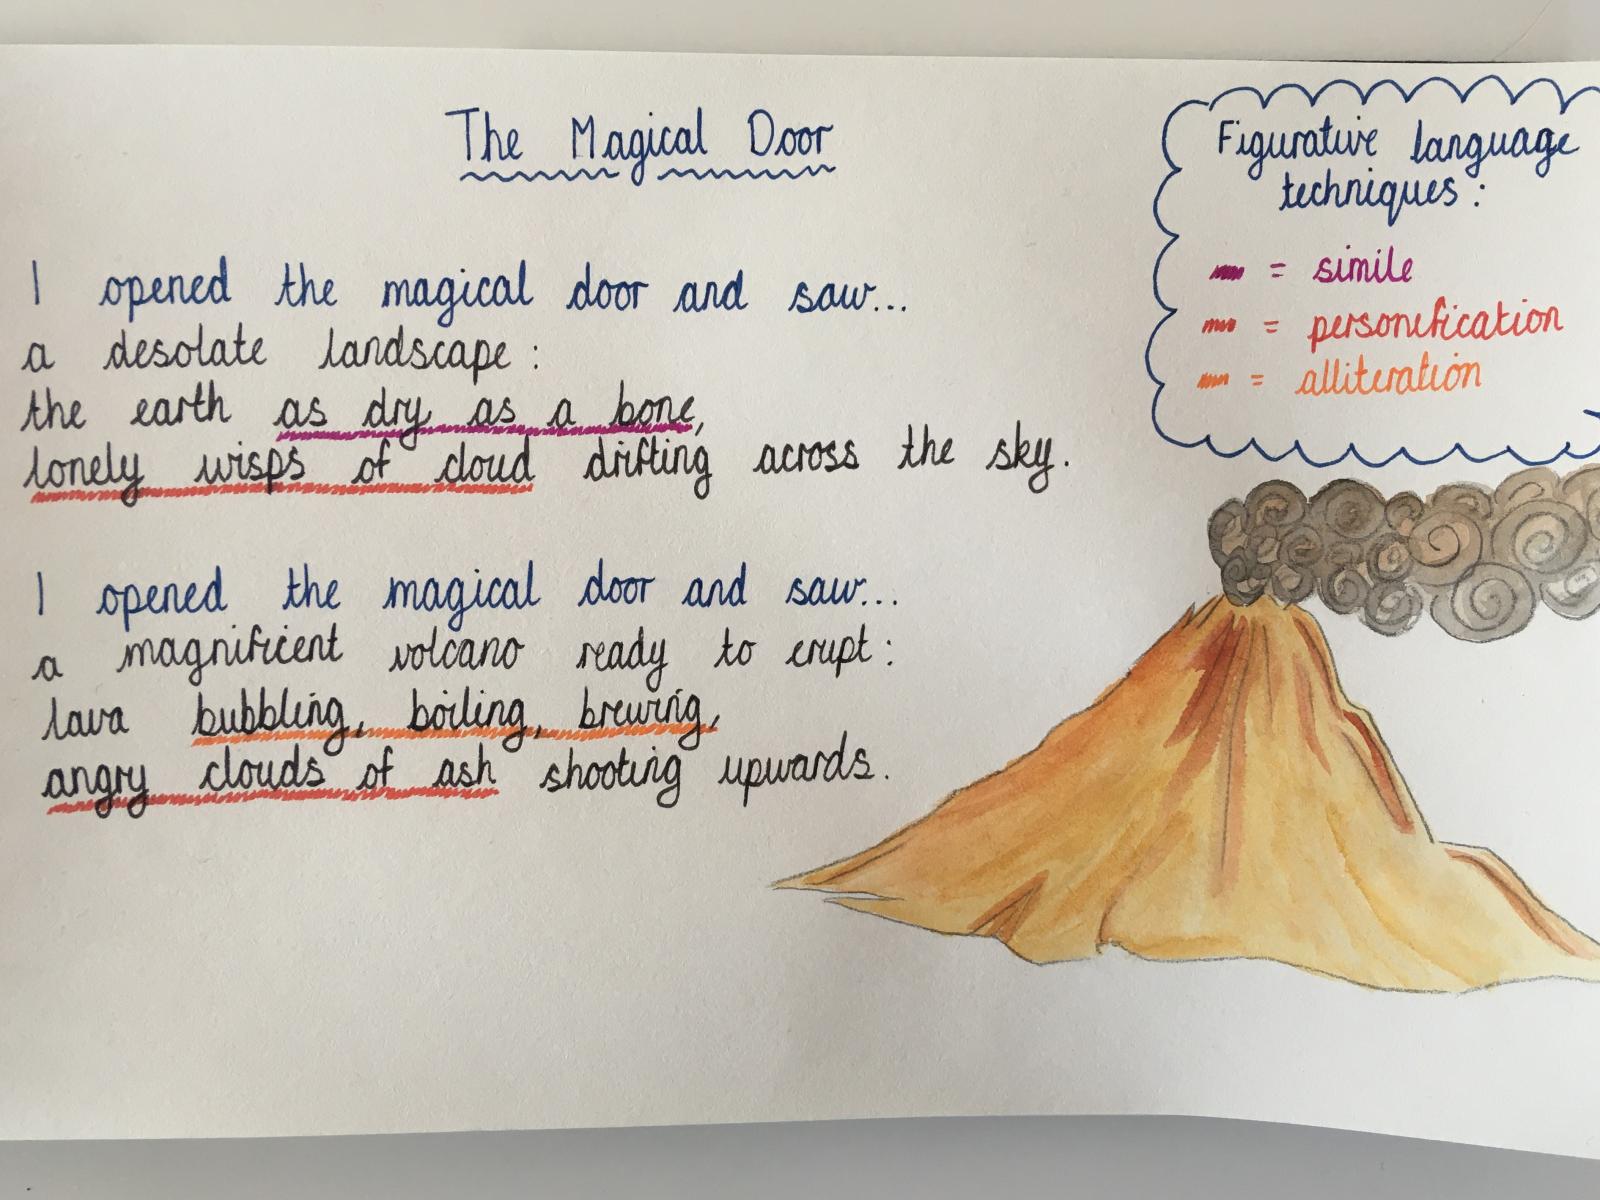 The Magical Door
I opened the magical door and saw...
a desolate landscape:
the earth as dry as a bone,
lonely wisps of cloud drifting across the sky.
I opened the magical door and saw...
a magnificent volcano ready to erupt:
lava bubbling, boiling, brewing,
angry clouds of ash shooting upwards.
Figurative language
techniques:
= simile
= personification
= alliteration